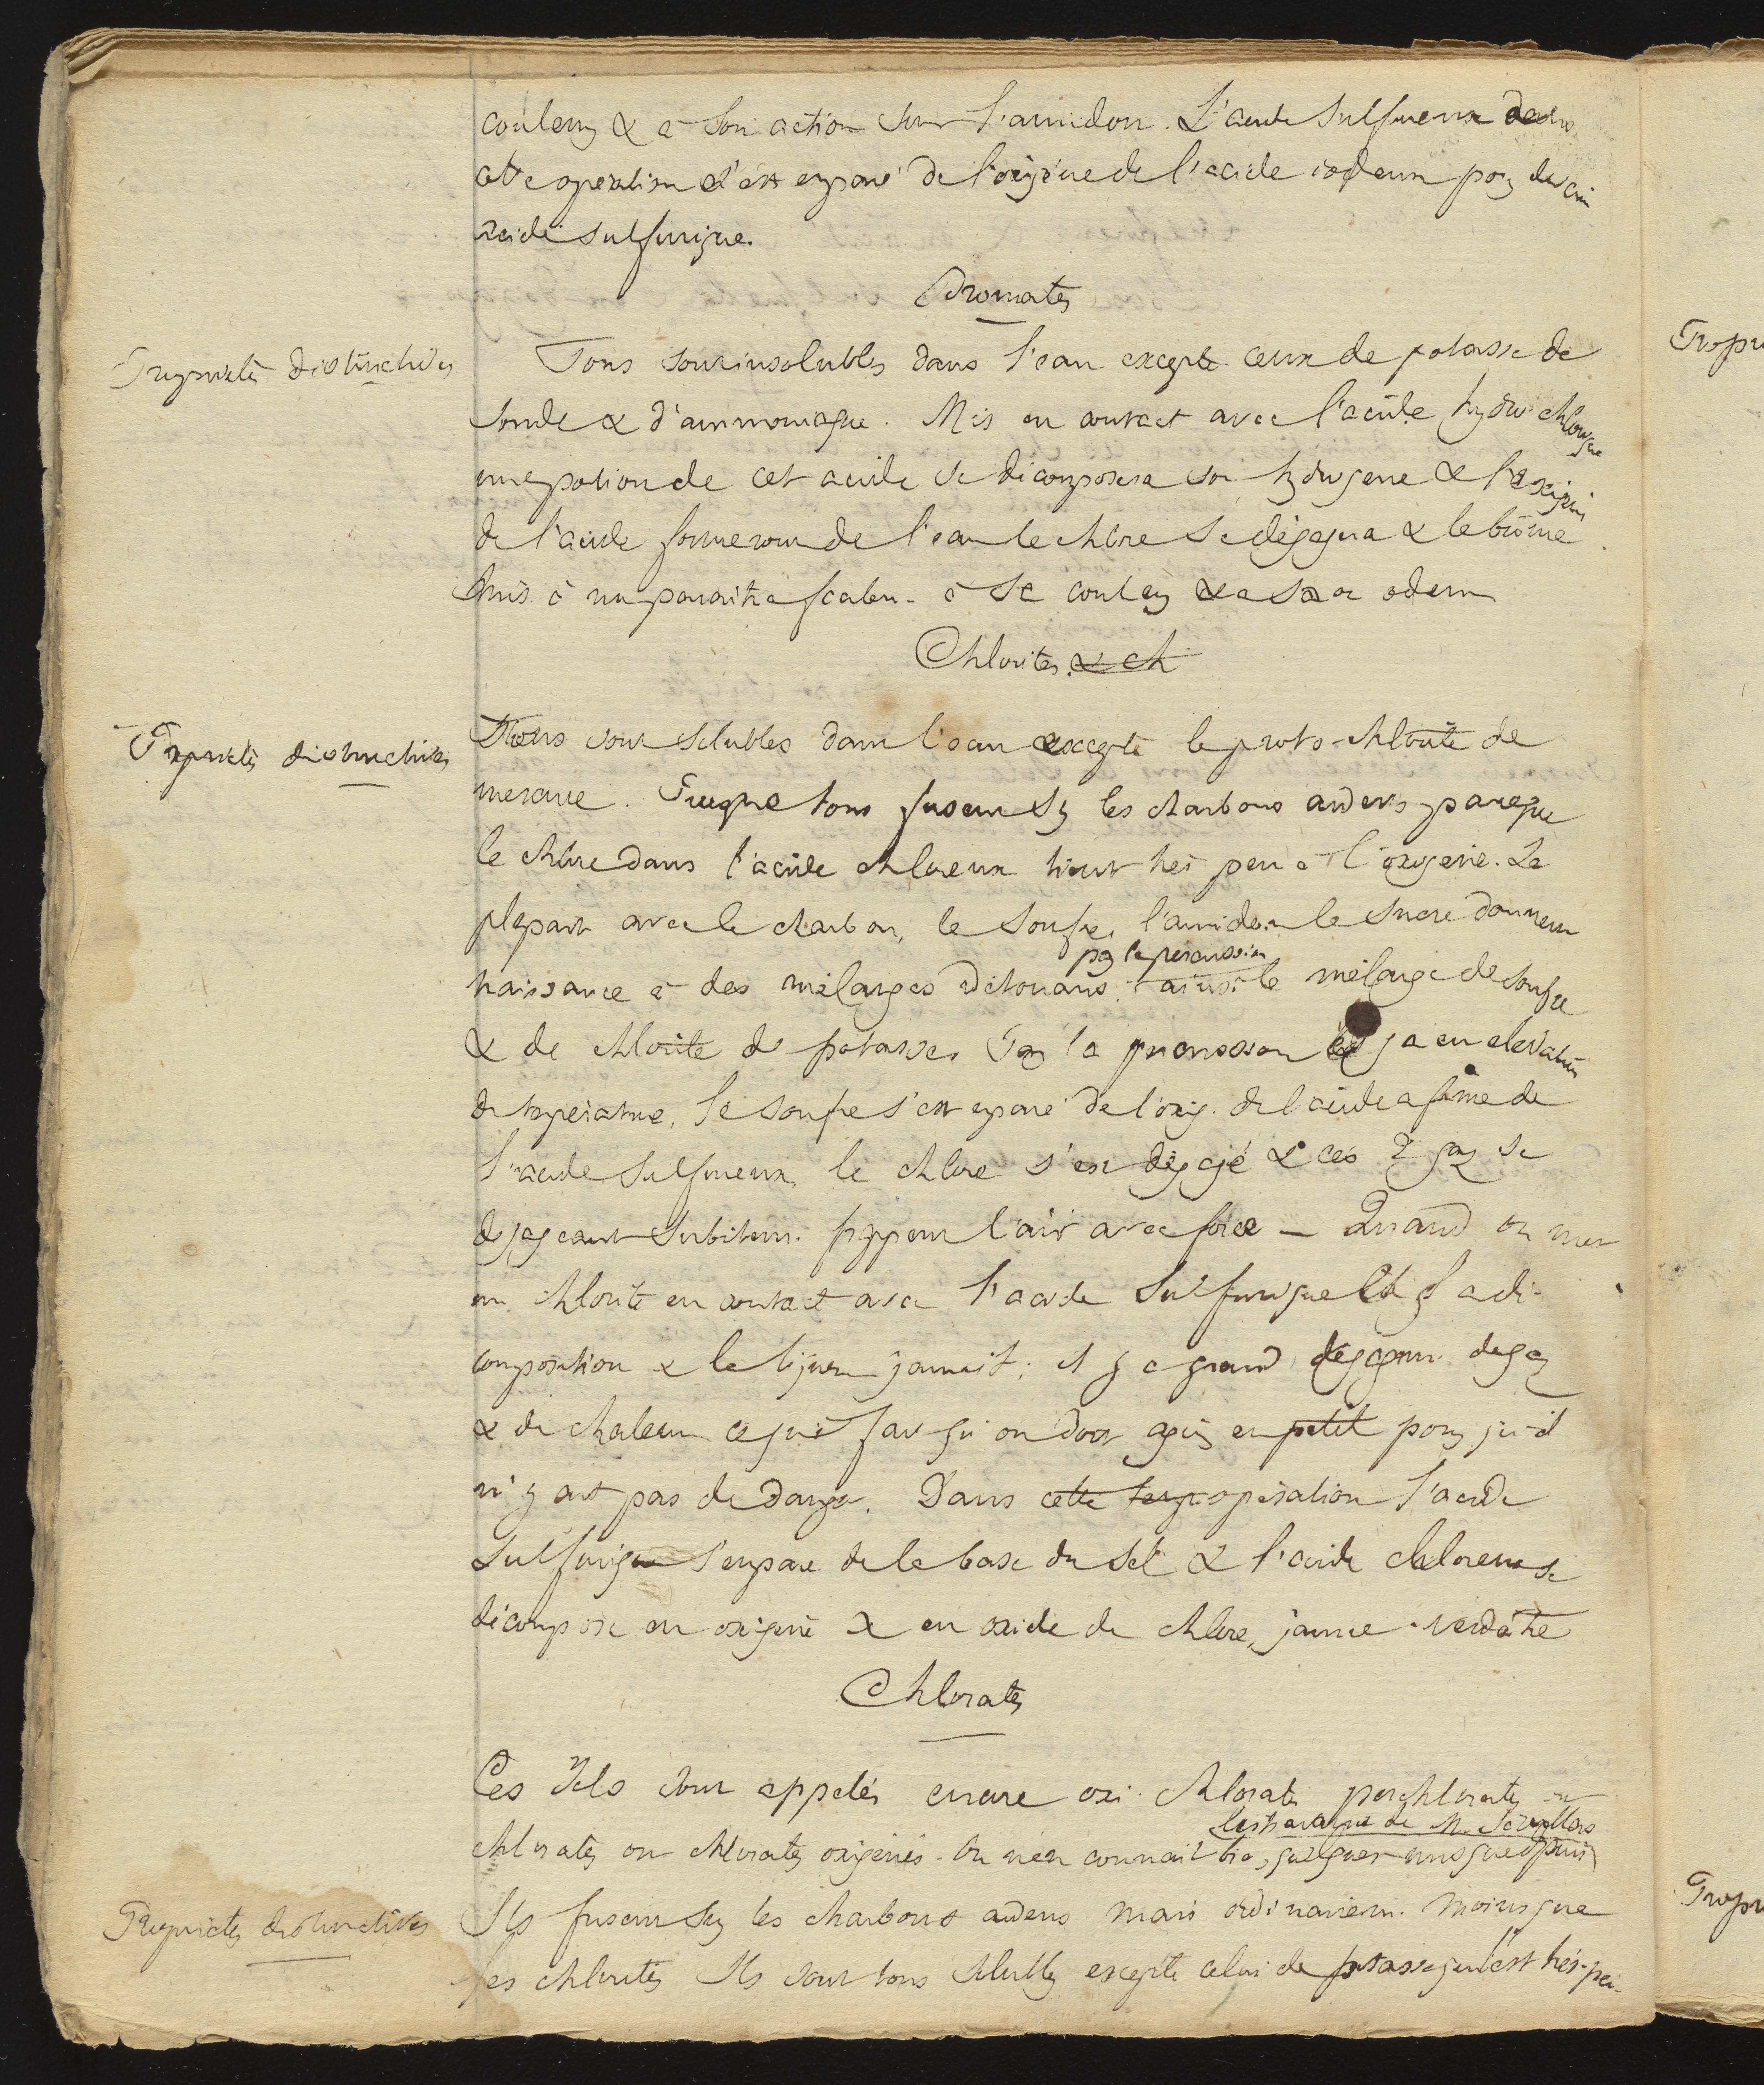 couleur & à son action sur l'amidon. L'acide sulfureux dans
cette opération s'est emparé de l'oxigène de l'acide iodeux pour devenir
acide sulfurique.
Bromates
Propriétés distinctives
Tous sont insolubles dans l'eau excepté ceux de potasse de
soude & d'ammoniaque. Mis en contact avec l'acide hydro chlorique
une portion de cet acide se décomposera son hydrogene & l'oxigène
de l'acide formeront de l'eau le chlore se dégagera & le brôme
mis à nu paraîtra à sa couleur & a son odeur
Chlorites. & ch
Propriétés distinctives
Tous sont solubles dans l'eau excepté le proto-chlorite de
mercure. Presque tous fusent sur les charbons ardens parceque
le chlore dans l'acide chloreux tient très peu à l'oxigene. La
plupart avec le charbon, le soufre, l'amidon le sucre donnent
par la percussion
naissance à des mélanges détonans, ainsi le mélange de soufre
& de chlorite de potasse. Par la percussion il y a eu élévation
de température, le soufre s'est emparé de l'oxig. de l'acide a formé de
l'acide sulfureux, le chlore s'est dégagé & ces 2 gaz se
dégageant subitem. frappent l'air avec force — Quand on met
un chlorite en contact avec l'acide sulfurique il y a dé-
composition & la liqueur jaunit; il y a grand dégagem. de gaz
& de chaleur ce qui fait qu'on doit agir en petit pour qu'il
n'y ait pas de danger. Dans cette temp opération l'acide
sulfurique s'empare de la base du sel & l'acide chloreux se
décompose en oxigène & en oxide de chlore, jaune verdâtre
Chlorates
Ces sels sont appelés encore oxi-chlorates perchlorates ou
les travaux de M. Sérullas
chlorates ou chlorates oxigénés. On n'en connait bien quelques uns que depuis
Propriétés distinctives
Ils fusent sur les charbons ardens mais ordinairem. moins que
les chlorites Ils sont tous solubles excepté celui de potasse qui l'est très-peu